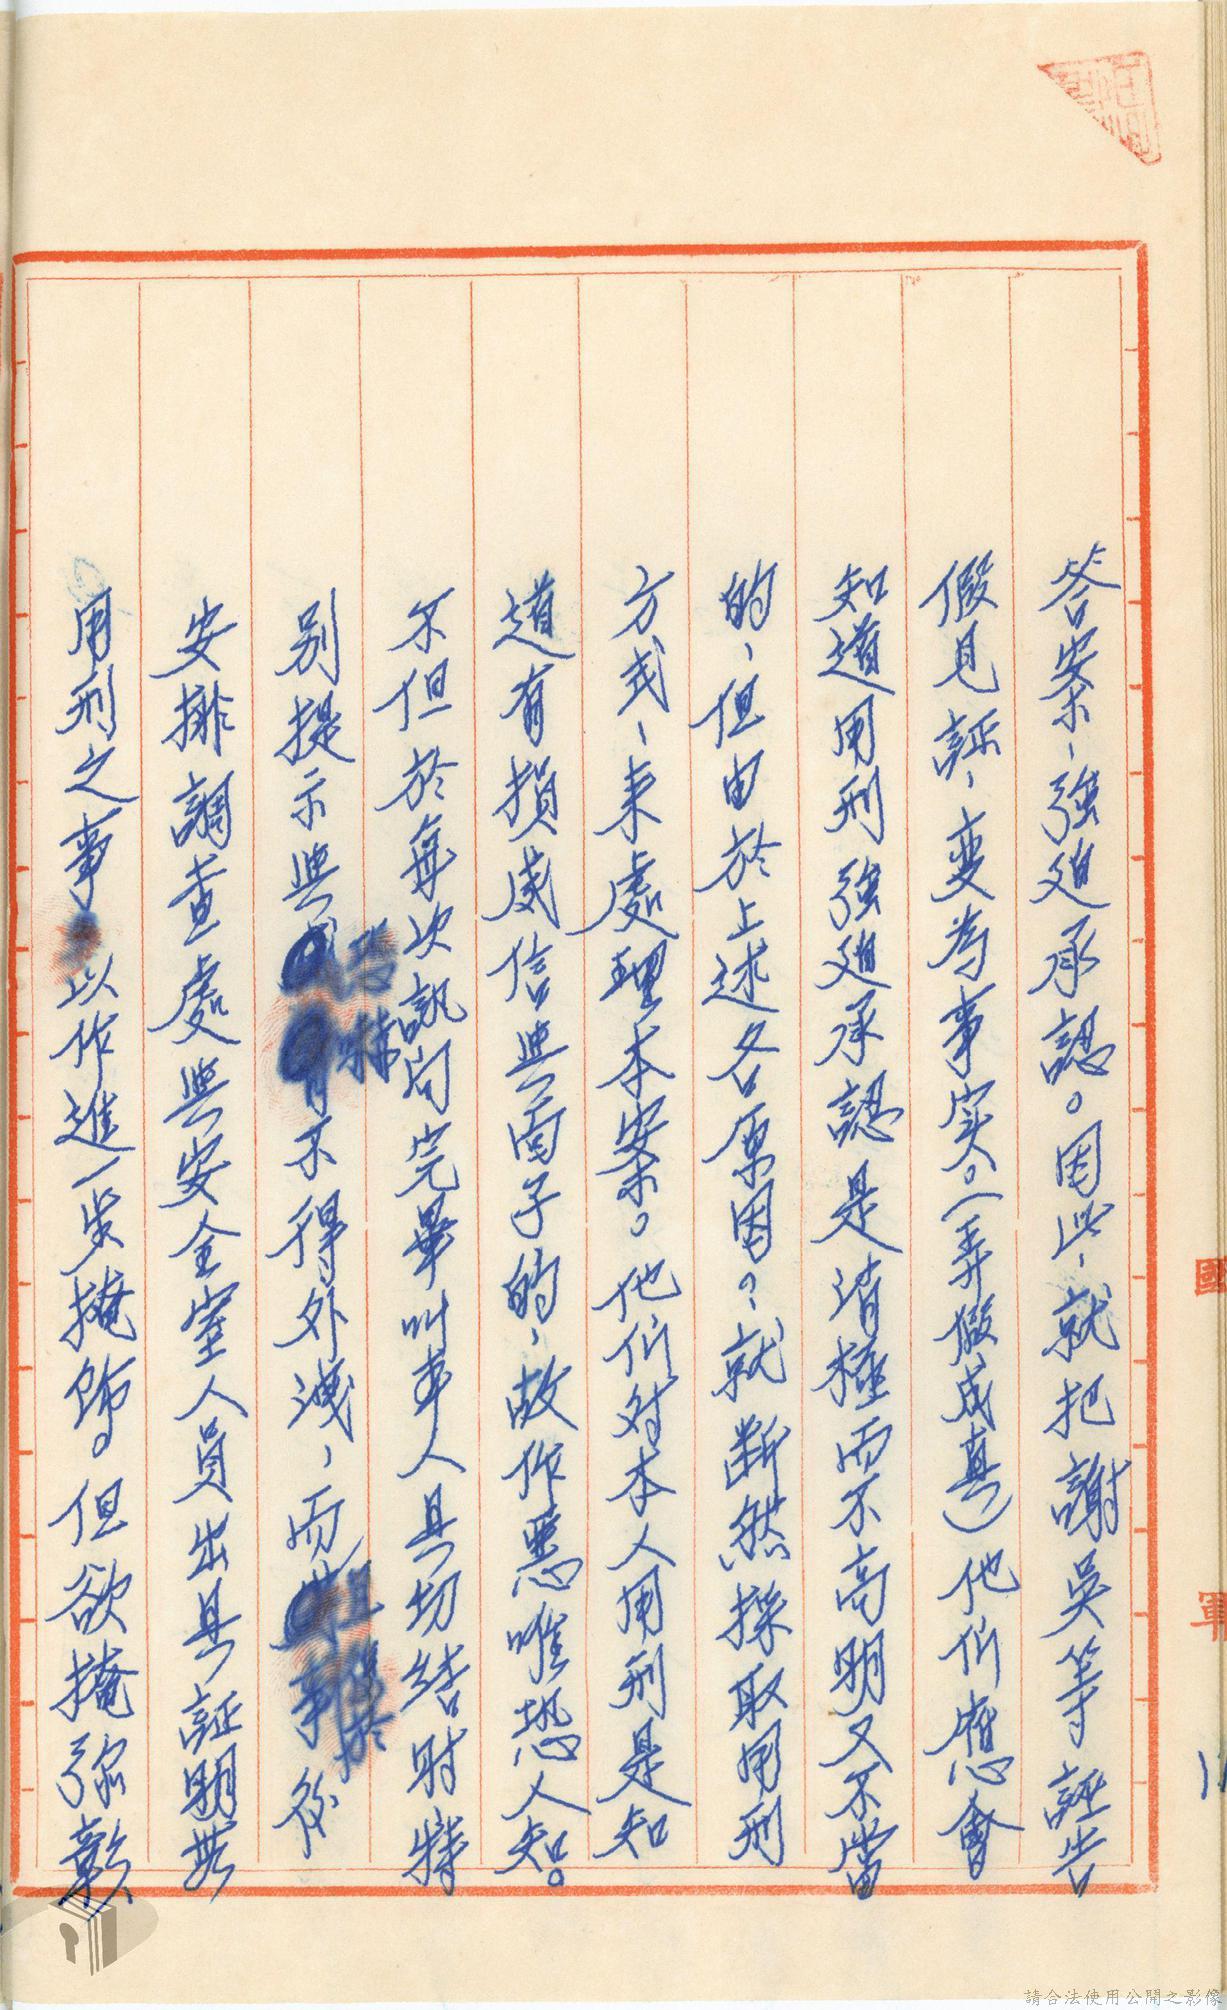 答案、強迫承認。因此、就把謝吳等誣告
假見証、变為事实。(弄假成真)他们應會
知道用刑強迫承認是消極而不高明又不當
的、但由於上述各原因。、就断然採取用刑
方式、来處理本案。他们对本人用刑是知
道有損威信與面子的、故作惡唯恐人知。
不但於每次訊问完畢叫本人具切結时特
別提示與 恐嚇 不得外洩、而且 事後
安排調查處與安全室人員出具証明無
用刑之事 以作進一步掩飾。但欲掩弥彰
國
軍
請合法使用公開之影像